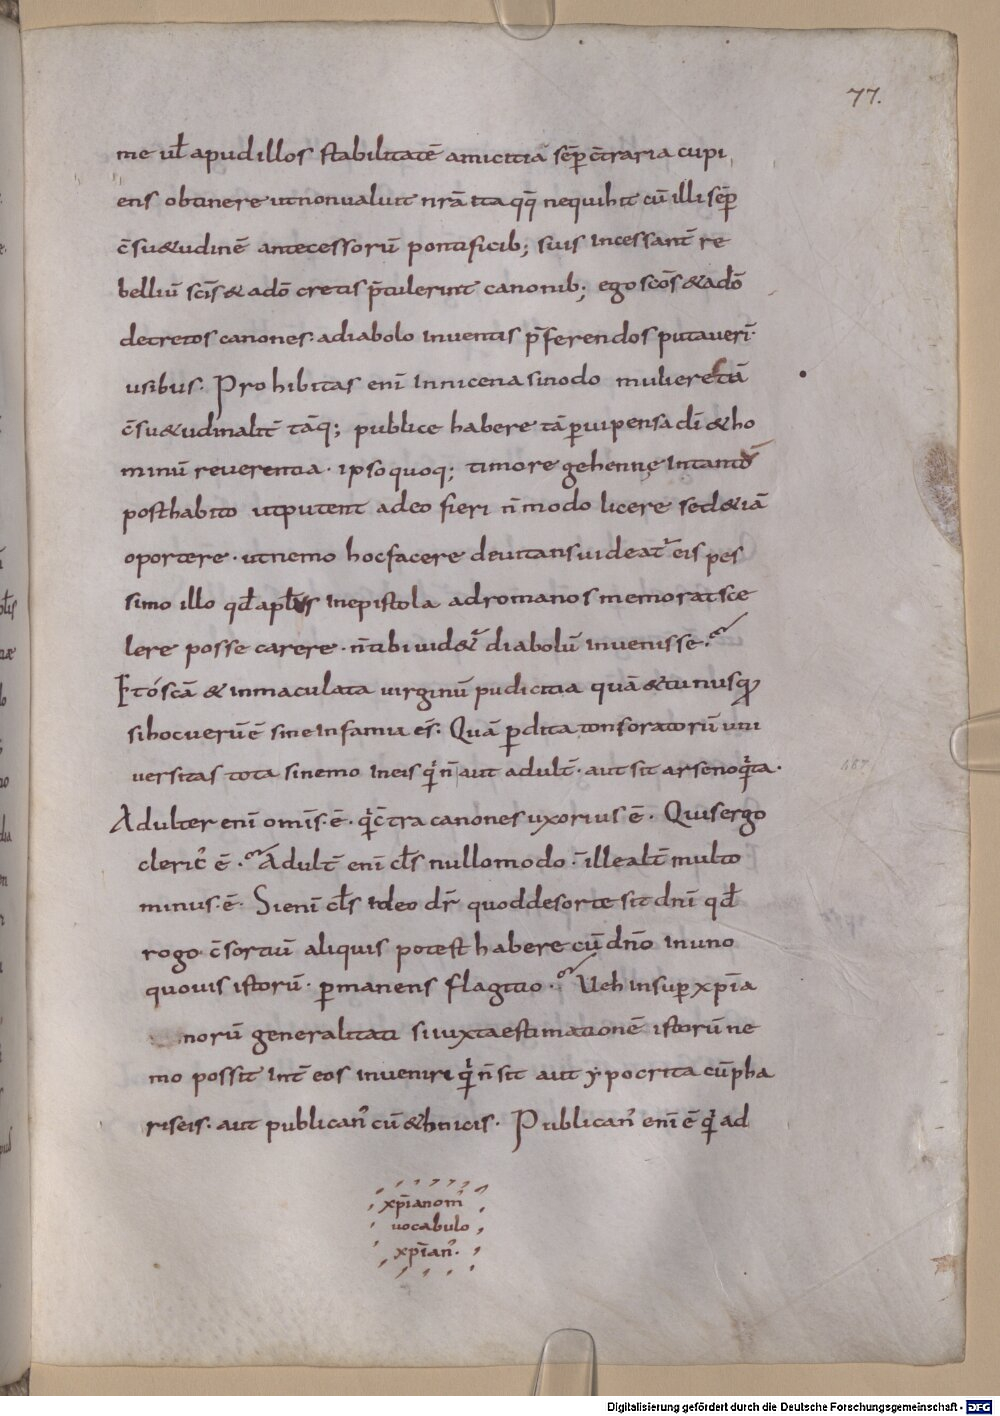 77.
me ul̄ apud illos stabilitatē amicitiā sēp c̄traria cupi
ens obtinere ut non ualuit nrā ita qq̄ nequibit cū illi sēp
c̄su&udinē antecessorū pontificib; suis incessant̄ re
belliū sc̄is & adō cretis p̄tulerint canonib; ego scōs & adō
decretos canones· a diabolo inuentis p̄ferendos putauerī·
usibus· Prohibitas enī in nicena sinodo mulieretā
c̄su&udinalit̄ tāq; publice habere tā ꝑuipensa dī & ho
minū reuerentia· ipso quoq; timore gehennę intantō
posthabito ut putent adeo fieri n̄modo licere sed & iā
oportere· ut nemo hoc facere deuitans uideat̄ eis pes
simo illo qđ apl̄s in epistola ad romanos memorat sce
lere posse carere· n̄ tibi uid&̄ diabolū inuenisse·
Et ó scā & inmaculata uirginū pudicitia quā & tu nusq̄
si hoc uerū ē sine infamia es̄· Quā ꝑdita tonsoratorū uni
uersitas tota si nemo in eis q̇ n̄ aut adult̄· aut sit arsenoq̇ta·
Adulter enī omīs· ē· q̇ c̄tra canones uxorius ē· Quis ergo
cleric᾽ ē· Adult̄ enī cl̄s nullomodo· ille alt̄ multo
minus· ē· Si enī cl̄s ideo dr̄ quod de sorte sit dnī qđ
rogo c̄sortiū aliquis potest habere cū dnō in uno
quouis istorū· ꝑmanens flagitio· Ueh insuꝑ xp̄ia
norū generalitati si iuxta estimationē istorū ne
mo possit int̄ eos inueniri q̇ n̄ sit aut ypocrita cū pha
riseis· aut publican᾽ cū &hnicis· Publican᾽ enī ē q̇ ad
xp̄iano m̄
uocabulo
xp̄ian᾽·
Digitalisierung gefördert durch die Deutsche Forschungsgemeinschaft - DFG